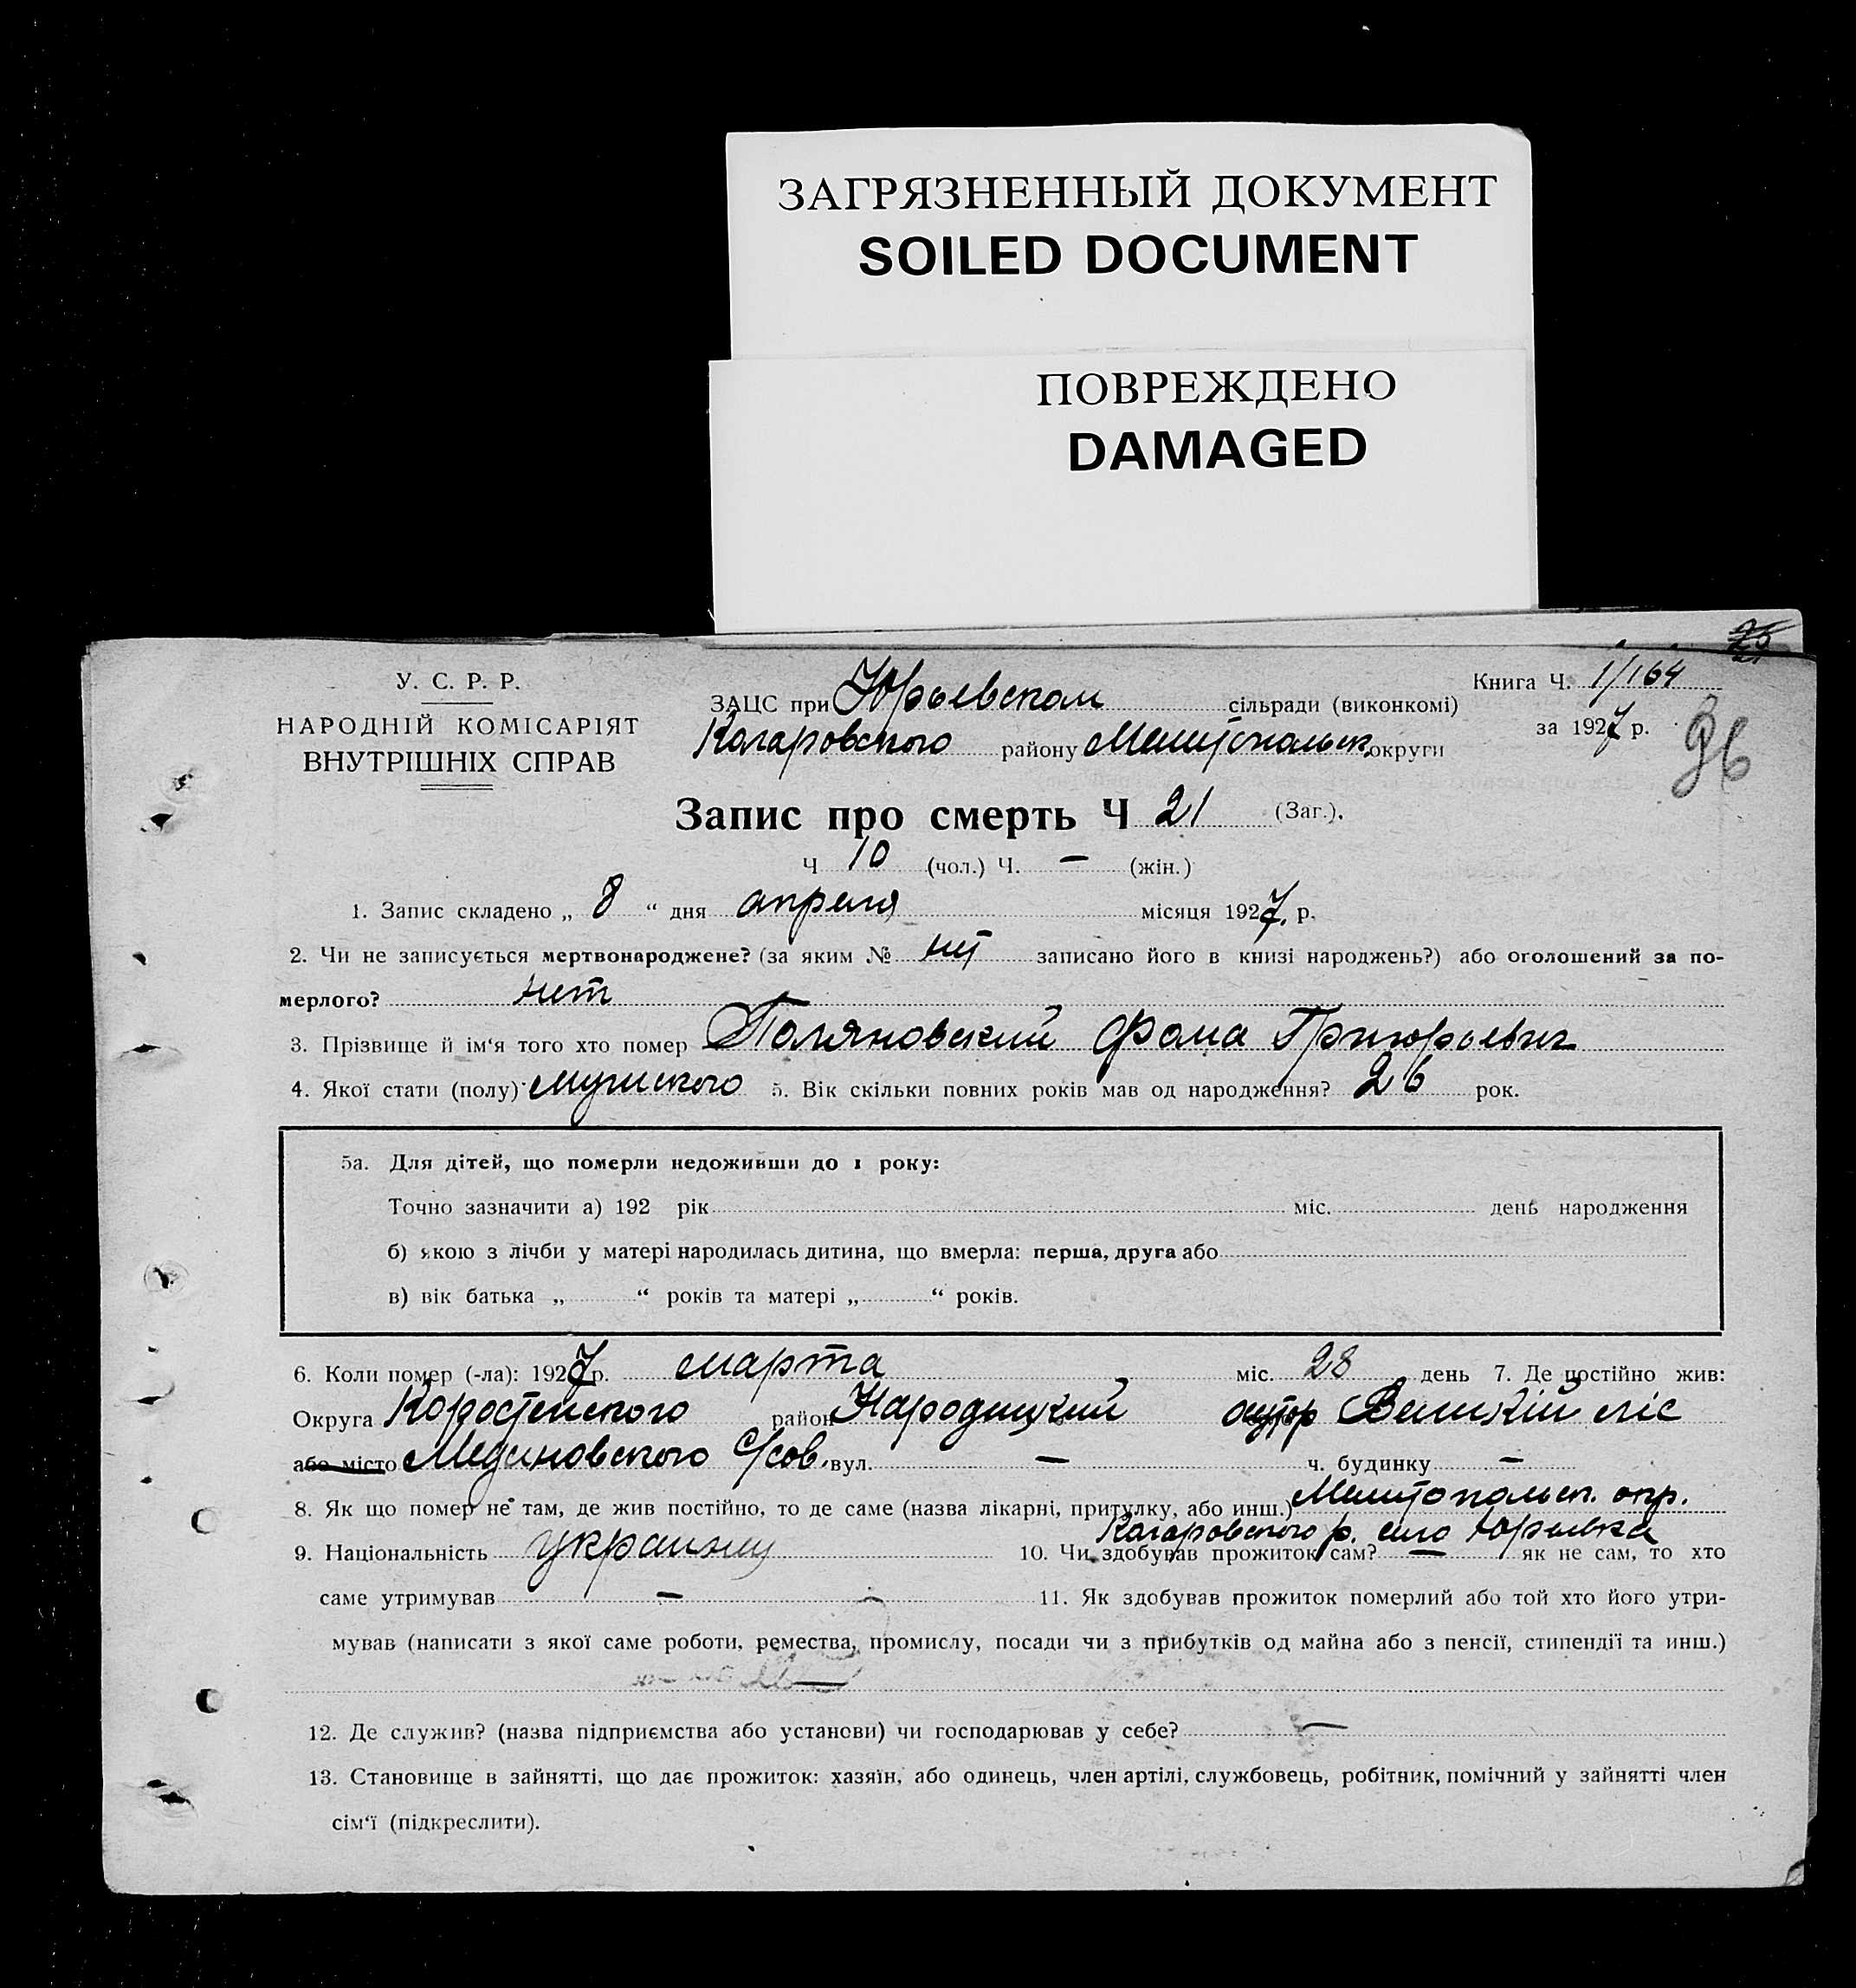 ЗАГРЯЗНЕННЫЙ ДОКУМЕНТ
SOILED DOCUMENT
ПОВРЕЖДЕНО
DAMAGED
У. С. Р. Р.
НАРОДНІЙ КОМІСАРІЯТ
ВНУТРІШНІХ СПРАВ
ЗАЦС при Юрьевском сільради (виконкомі)
районy Мелитопольск. округи
Книга Ч. 1/164
за 1927 р.
Запис про смерть Ч 21 (Заг.).
Ч 10 (чол.) Ч. — (жін.)
1. Запис складено „ 8 “ дня апреля місяця 1927. р.
2. Чи не записується мертвонароджене? (за яким № нет записано його в книзі народжень?) або оголошений за по-
мерлого? нет
3. Прізвище й ім‘я того хто помер Поляновский Фома Григорьевич
4. Якої стати (полу) мужского 5. Вік скільки повних років мав од народження? 26 рок.
5а. Для дітей, що померли недоживши до 1 року:
Точно зазначити а) 192 рік міс. день народження
б) якою з лічби у матері народилась дитина, що вмерла: перша, друга або
в) вік батька „ “ років та матері „ “ років.
6. Коли помер (-ла): 1927 р. марта міс. 28 день 7. Де постійно жив:
Округа Коростенского район Народицкий
або місто вул. — ч. будинку —
8. Як що помер не там, де жив постійно, то де саме (назва лікарні, притулку, або инш.) Мелитопольск. окр.
р. село Юрьевка
9. Національність 10. Чи здобував прожиток сам? — як не сам, то хто
саме утримував — 11. Як здобував прожиток померлий або той хто його утри-
мував (написати з якої саме роботи, ремества, промислу, посади чи з прибутків од майна або з пенсії, стипендії та инш.)
12. Де служив? (назва підприємства або установи) чи господарював у себе? —
13. Становище в зайнятті, що дає прожиток: хазяїн, або одинець, член артілі, службовець, робітник, помічний у зайнятті член
сім‘ї (підкреслити).